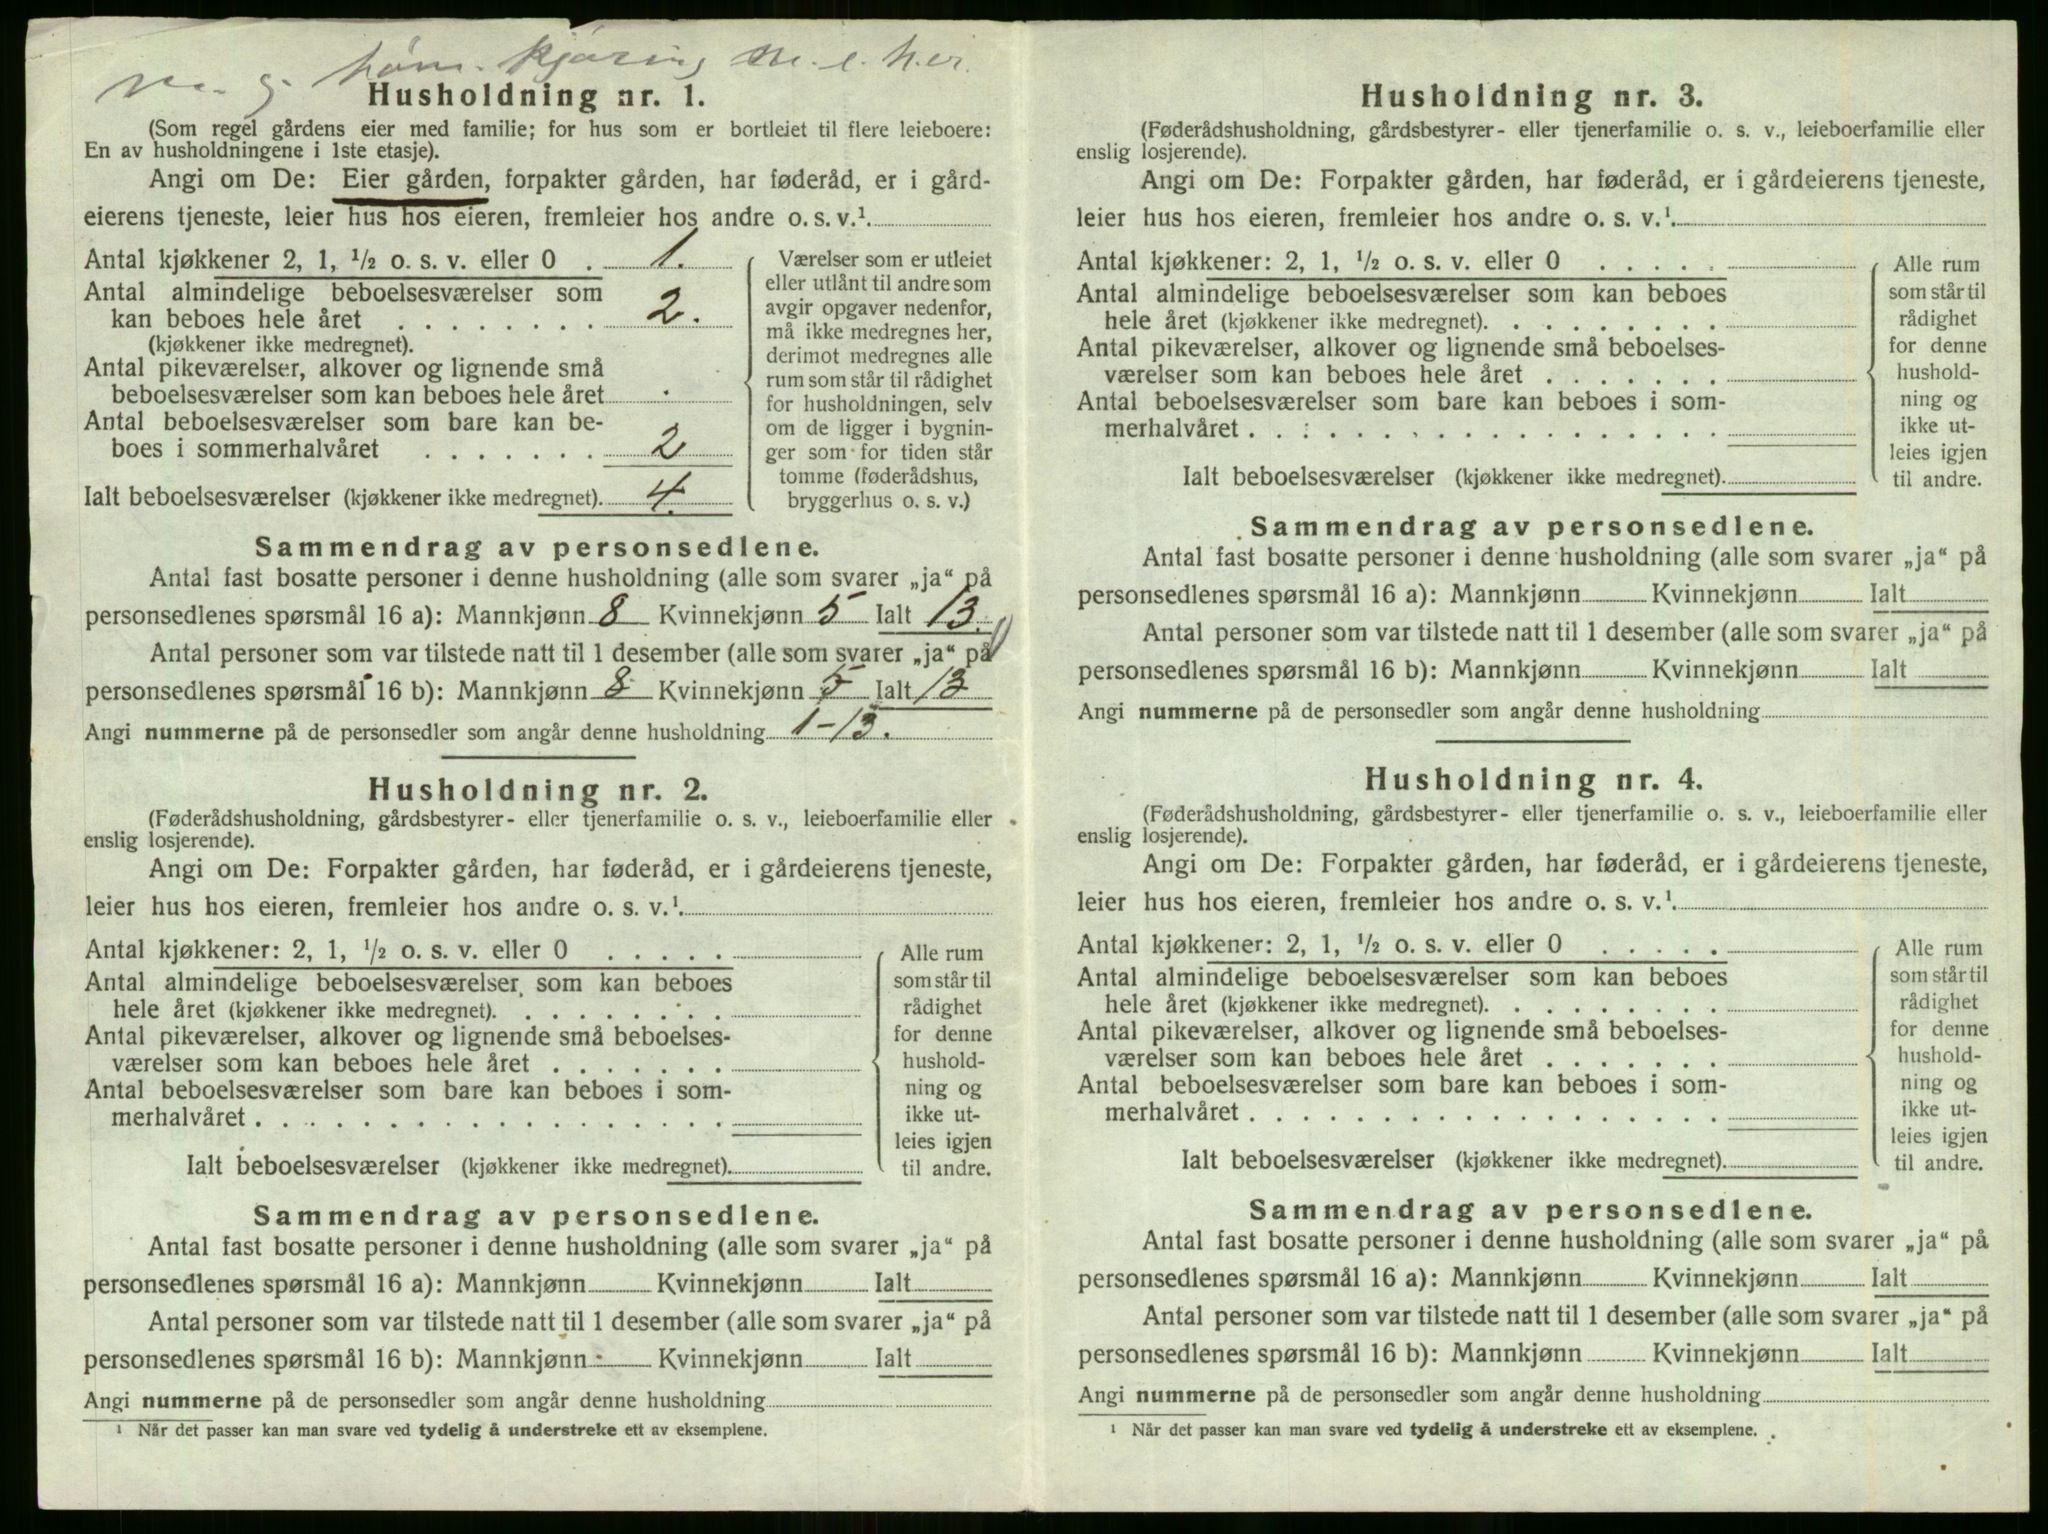 kjøring
Husholdning nr. 1.
(Som regel gårdens eier med familie; for hus som er bortleiet til flere leieboere:
En av husholdningene i 1ste etasje).
Angi om De: Eier gården, forpakter gården, har føderåd, er i gård-
eierens tjeneste, leier hus hos eieren, fremleier hos andre o. s. v.¹.
Antal kjøkkener 2, 1, ½ o. s. v. eller 0 . 1.
Antal almindelige beboelsesværelser som
kan beboes hele året . . . . . . . . 2.
(kjøkkener ikke medregnet).
Antal pikeværelser, alkover og lignende små
beboelsesværelser som kan beboes hele året
Antal beboelsesværelser som bare kan be-
boes i sommerhalvåret . . . . . . . 2
Ialt beboelsesværelser (kjøkkener ikke medregnet). 4.
Værelser som er utleiet
eller utlånt til andre som
avgir opgaver nedenfor,
må ikke medregnes her,
derimot medregnes alle
rum som står til rådighet
for husholdningen, selv
om de ligger i bygnin-
ger som for tiden står
tomme (føderådshus,
bryggerhus o. s. v.)
Sammendrag av personsedlene.
Antal fast bosatte personer i denne husholdning (alle som svarer „ja“ på
personsedlenes spørsmål 16 a): Mannkjønn 8 Kvinnekjønn 5 Ialt 13.
Antal personer som var tilstede natt til 1 desember (alle som svarer „ja“ på
personsedlenes spørsmål 16 b): Mannkjønn 8 Kvinnekjønn 5 Ialt 13
Angi nummerne på de personsedler som angår denne husholdning 1-13.
Husholdning nr. 2.
(Føderådshusholdning, gårdsbestyrer- eller tjenerfamilie o. s. v., leieboerfamilie eller
enslig losjerende).
Angi om De: Forpakter gården, har føderåd, er i gårdeierens tjeneste,
leier hus hos eieren, fremleier hos andre o. s. v.¹.
Antal kjøkkener: 2, 1, ½ o. s. v. eller 0 . . . . .
Antal almindelige beboelsesværelser som kan beboes
hele året (kjøkkener ikke medregnet). . . . . . . . .
Antal pikeværelser, alkover og lignende små beboelses-
værelser som kan beboes hele året . . . . . . .
Antal beboelsesværelser som bare kan beboes i som-
merhalvåret . . . . . . . . . . . . . . . . . .
Ialt beboelsesværelser (kjøkkener ikke medregnet).
Alle rum
som står til
rådighet
for denne
hushold-
ning og
ikke ut-
leies igjen
til andre.
Sammendrag av personsedlene.
Antal fast bosatte personer i denne husholdning (alle som svarer „ja“ på
personsedlenes spørsmål 16 a): Mannkjønn Kvinnekjønn Ialt
Antal personer som var tilstede natt til 1 desember (alle som svarer „ja“ på
personsedlenes spørsmål 16 b): Mannkjønn Kvinnekjønn Ialt
Angi nummerne på de personsedler som angår denne husholdning
¹ Når det passer kan man svare ved tydelig å understreke ett av eksemplene.
Husholdning nr. 3.
(Føderådshusholdning, gårdsbestyrer- eller tjenerfamilie o. s. v., leieboerfamilie eller
enslig losjerende).
Angi om De: Forpakter gården, har føderåd, er i gårdeierens tjeneste,
leier hus hos eieren, fremleier hos andre o. s. v.¹.
Antal kjøkkener: 2, 1, ½ o. s. v. eller 0 . . . . .
Antal almindelige beboelsesværelser som kan beboes
hele året (kjøkkener ikke medregnet). . . . . . . . .
Antal pikeværelser, alkover og lignende små beboelses-
værelser som kan beboes hele året . . . . . . .
Antal beboelsesværelser som bare kan beboes i som-
merhalvåret . . . . . . . . . . . . . . . . . .
Ialt beboelsesværelser (kjøkkener ikke medregnet).
Alle rum
som står til
rådighet
for denne
hushold-
ning og
ikke ut-
leies igjen
til andre.
Sammendrag av personsedlene.
Antal fast bosatte personer i denne husholdning (alle som svarer „ja“ på
personsedlenes spørsmål 16 a): Mannkjønn Kvinnekjønn Ialt
Antal personer som var tilstede natt til 1 desember (alle som svarer „ja“ på
personsedlenes spørsmål 16 b): Mannkjønn Kvinnekjønn Ialt
Angi nummerne på de personsedler som angår denne husholdning
Husholdning nr. 4.
(Føderådshusholdning, gårdsbestyrer- eller tjenerfamilie o. s. v., leieboerfamilie eller
enslig losjerende).
Angi om De: Forpakter gården, har føderåd, er i gårdeierens tjeneste,
leier hus hos eieren, fremleier hos andre o. s. v.¹.
Antal kjøkkener: 2, 1, ½ o. s. v. eller 0 . . . . .
Antal almindelige beboelsesværelser som kan beboes
hele året (kjøkkener ikke medregnet). . . . . . . . .
Antal pikeværelser, alkover og lignende små beboelses-
værelser som kan beboes hele året . . . . . . .
Antal beboelsesværelser som bare kan beboes i som-
merhalvåret . . . . . . . . . . . . . . . . . .
Ialt beboelsesværelser (kjøkkener ikke medregnet).
Alle rum
som står til
rådighet
for denne
hushold-
ning og
ikke ut-
leies igjen
til andre.
Sammendrag av personsedlene.
Antal fast bosatte personer i denne husholdning (alle som svarer „ja“ på
personsedlenes spørsmål 16 a): Mannkjønn Kvinnekjønn Ialt
Antal personer som var tilstede natt til 1 desember (alle som svarer „ja“ på
personsedlenes spørsmål 16 b): Mannkjønn Kvinnekjønn Ialt
Angi nummerne på de personsedler som angår denne husholdning
¹ Når det passer kan man svare ved tydelig å understreke ett av eksemplene.